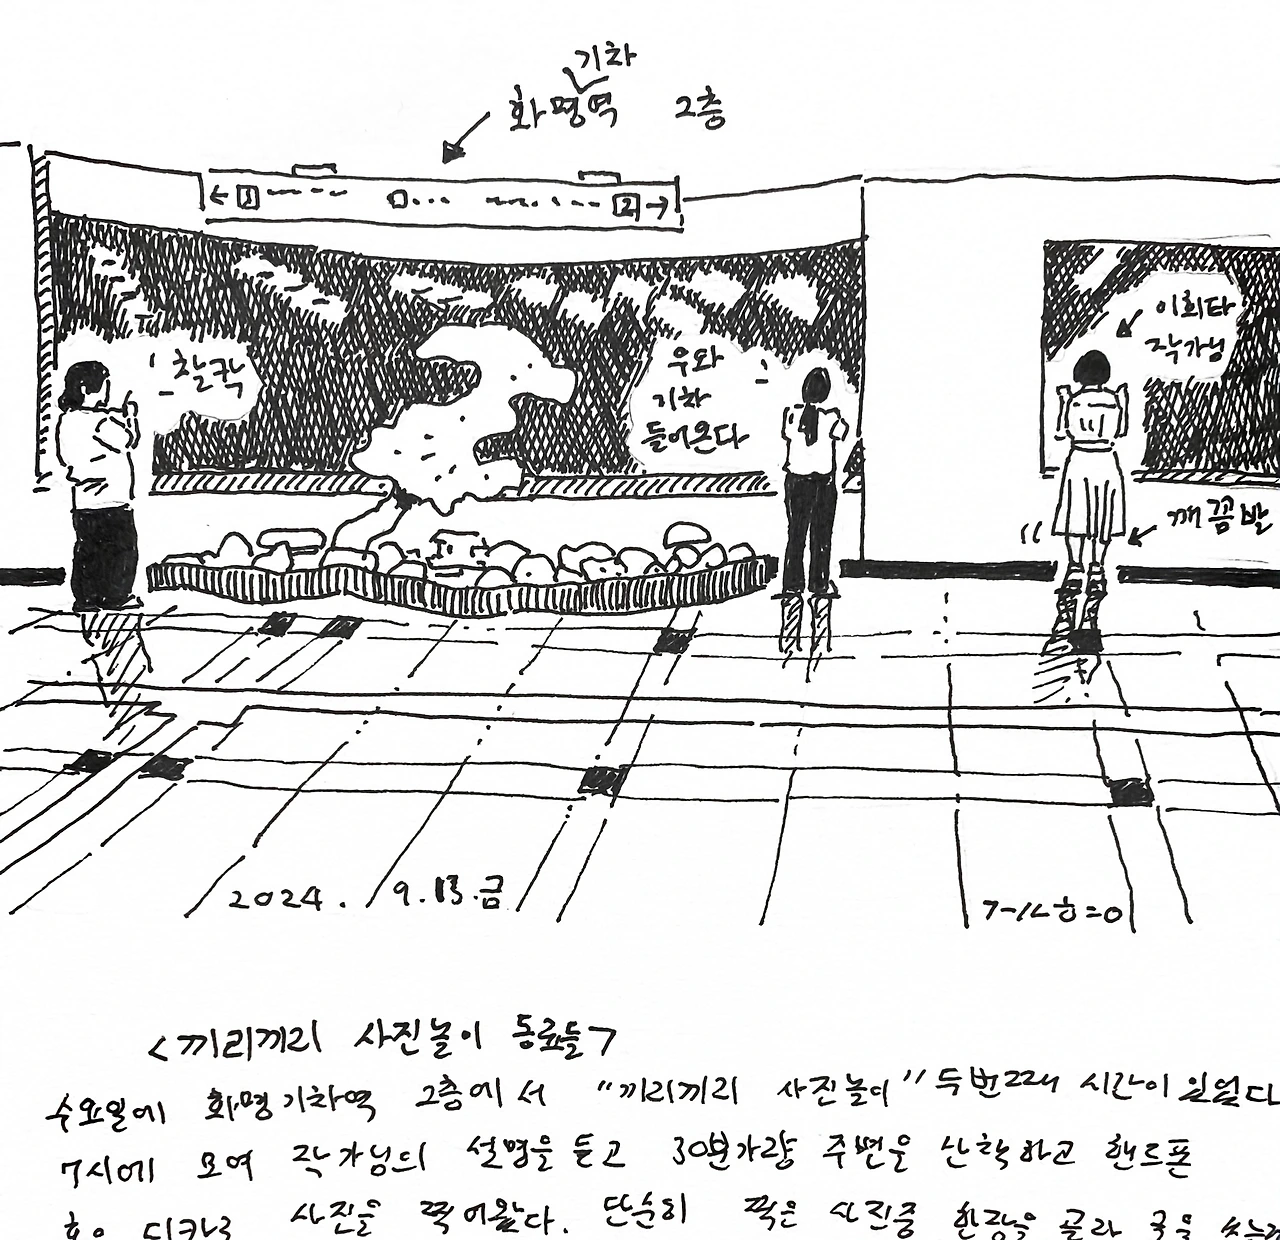 기차
화명역 2층
← 1
2 →
찰칵
우와
기차
들어온다
이희타
작가님
깨꼼발
2024. 9.13.금
<끼리끼리 사진놀이 동료들>
수요일에 화명기차역 2층에서 "끼리끼리 사진놀이" 두번째 시간이 있었다
7시에 모여 작가님의 설명을 듣고 30분가량 주변을 산책하고 핸드폰
혹은 디카로 사진을 찍어왔다. 단순히 찍은 사진중 한장을 골라 글을